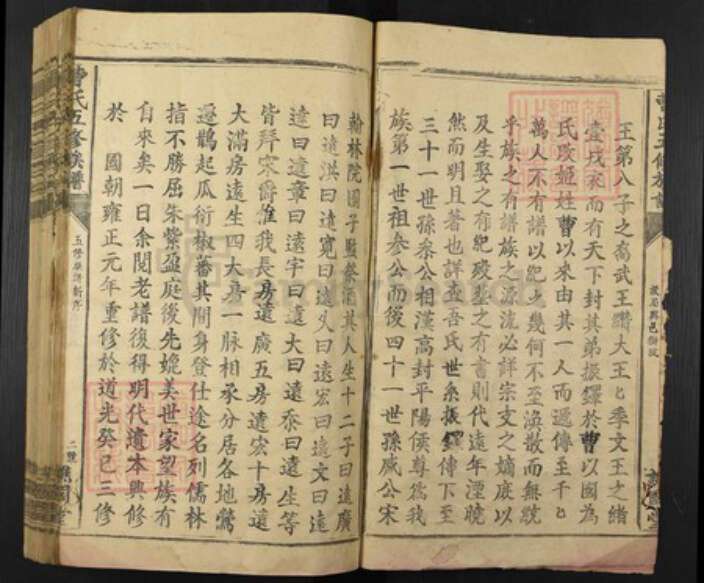 王第八子之裔武王纘大王王季文王之緒
壹戎衣而有天下封其弟振鐸於曹以國為
氏改姬姓曹以來由其一人而遞傳至千
萬人不有譜以紀之幾何不至渙散而無統
乎族之有譜族之源流必詳宗支之嫡庶以
及生娶之有紀歿塟之有書則代遠年湮曉
然而明且著也詳查吾氏世系振鐸傳下至
三十一世孫叅公相漢高封平陽侯尊為我
族第一世祖參公而後四十一世孫咸公宋
翰林院國子監祭酒其人生十二子曰遠廣
曰遠洪曰遠寬曰遠久曰遠宏曰遠文曰遠
達曰遠章曰遠宇曰遠大曰遠泰曰遠生等
皆拜宋爵惟我長房遠廣五房遠宏十房遠
大滿房遠生四大房一脈相承分居各地鶯
遷鵲起瓜衍椒蕃其間身登仕途名列儒林
指不勝屈朱紫盈庭後先媲美世家望族有
自來矣一日余閱老譜後得明代遺本興修
於 國朝雍正元年重修於道光癸巳三修
曹氏五修族譜
五修族譜新序
二號